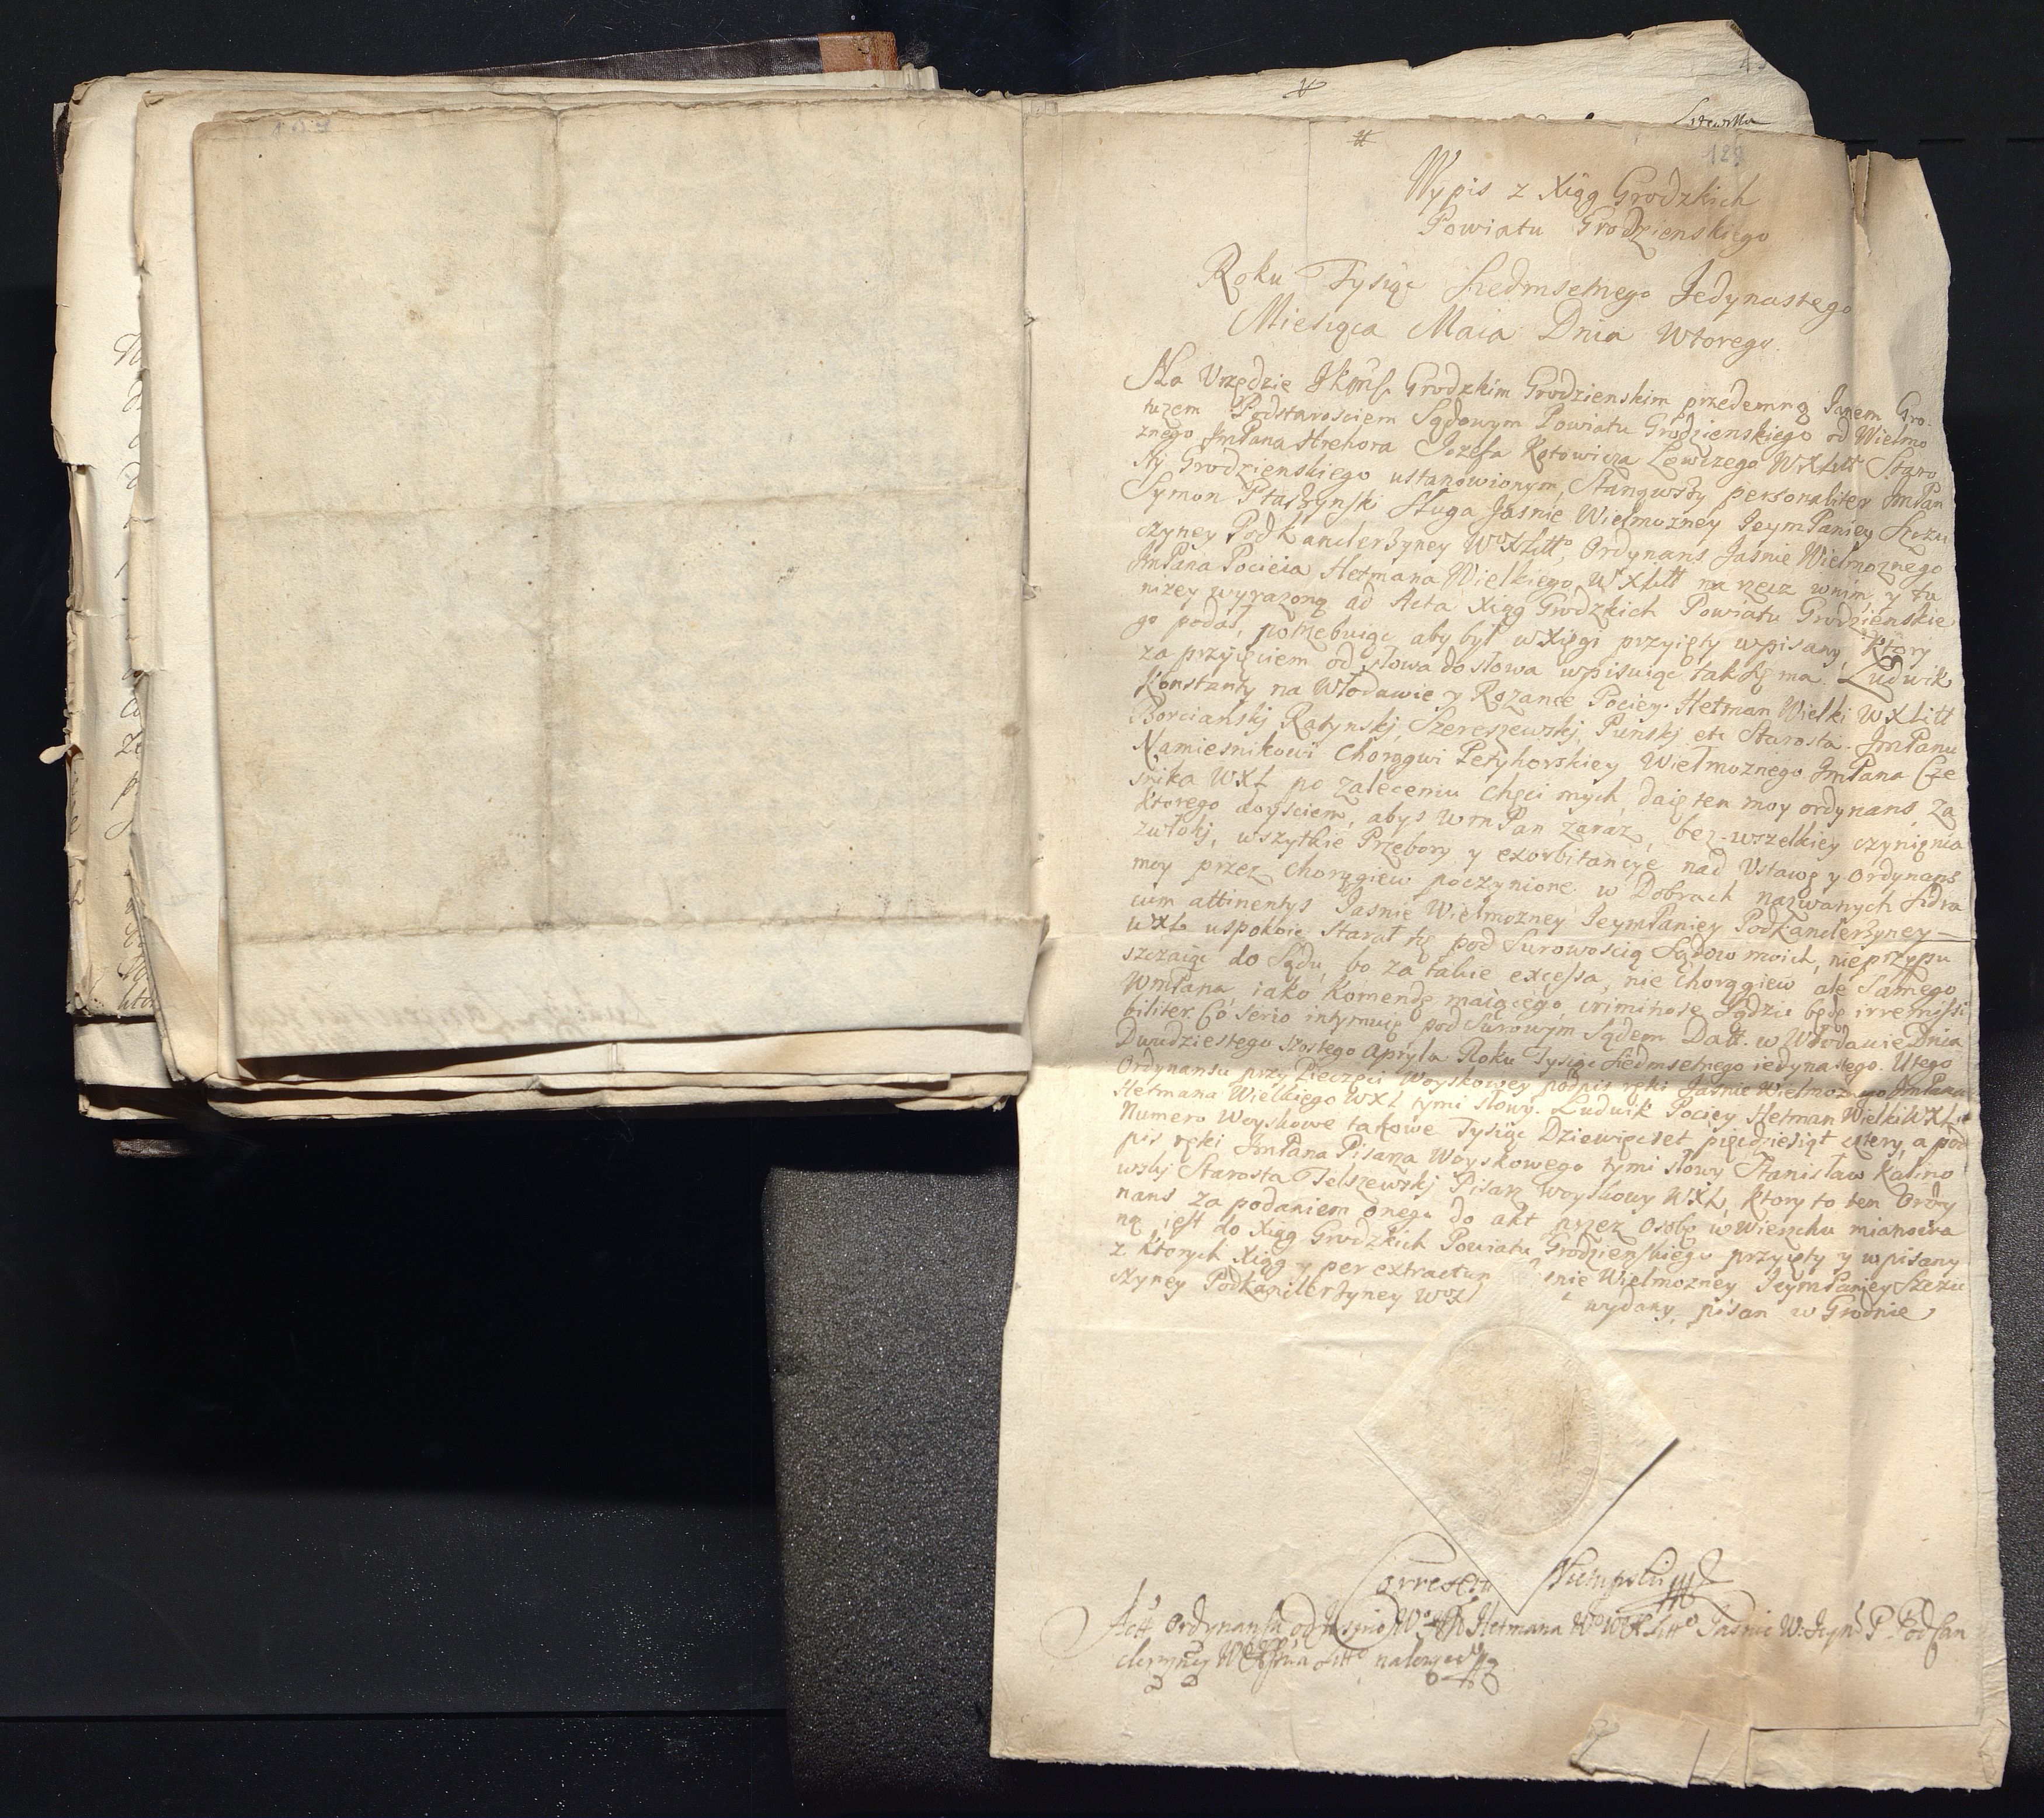 129
Wypis z Xiąg Grodzkich
Powiatu Grodzienskiego
Roku Tysiąc Siedmsetnego Jedynastego
Miesiąca Maia Dnia Wtorego
Na Urzędzie Jkmsc Grodzkim Grodzienskim przedemną Janem Gro
tuzem Podstarosciem Sądowym Powiatu Grodzienskiego od Wielmo
znego JmPana Hrehora Jozefa Kotowicza Łowczego WXLitt Staro
sty Grodzienskiego ustanowionym, Stanąwszy personaliter JmPan
Symon Ptaszynski Sługa Jasnie Wielmozney JeymPaniey Szczu
czyney Podkanclerzyney WoXLitto, Ordynans Jasnie Wielmoznego
JmPana Pocieia Hetmana Wielkiego WXLitt na rzecz wnim y tu
nizey wyrazoną ad Acta Xiąg Grodzkich Powiatu Grodzienskie
go podał, potrzebuiąc aby był w Xięgi przyięty wpisany, ktory
za przyięciem od słowa do słowa wpisuiąc tak się ma. Ludwik
Konstanty na Włodawie y Rozance Pociey Hetman Wielki WXLitt
Borcianskj Ratynskj, Szereszewskj, Punskj etc Starosta. JmPanu
Namiesnikowi Chorągwi Petyhorskiey Wielmoznego JmPana Cze
snika WXL po zaleceniu chęci mych, daię ten moy ordynans, za
ktorego doysciem, abys WmPan zaraz, bez wszelkiey czynienia
zwłoki, wszytkie Przebory y exorbitancye nad Ustawę y ordynans
moy przez chorągiew poczynione w Dobrach nazwanych Sidra
cum attinentys Jasnie Wielmozney JeymPaniey Podkanclerzyney
WXL uspokoic starał się pod Surowoscią Sądow moich, nieprzypu
szczaiąc do Sądu, bo za takie excessa, nie chorągiew ale Samego
WmPana iako Komendę maiącego, criminose sądzic będę irremissi
biliter. Co serio intymuię pod Surowym Sądem. Datt. w Włodawie Dnia
Dwudziestego szostego Apryla Roku Tysiąc Siedmsetnego iedynastego. Utego
Ordynansu przy Pieczęci Woyskowey podpis ręki Jasnie Wielmoznego JmPana
Hetmana Wielkiego WXL tymi słowy. Ludwik Pociey Hetman Wielki WXL
Numero Woyskowe takowe Tysiąc Dziewięcset pięcdziesiąt cztery, a pod
pis ręki JmPana Pisarza Woyskowego tymi słowy Stanisław Kalino
wskj Starosta Telszewskj Pisarz Woyskowy WXL, ktory to ten Ordy
nans za podaniem onego do akt przez Osobę w Wierzchu mianowa
ną iest do Xiąg Grodzkich Powiatu Grodzienskiego przyięty y wpisany
z ktorych Xiąg y per extractum snie Wielmozney JeymPaniey Szczu
czyney Podkanclerzyney WoX wydany, pisan w Grodnie
Correxit
Actt Ordynansu od Jasnie Hetmana Jasnie P Podkan
clerzyney należący